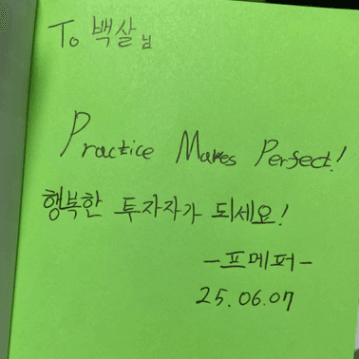 To 백살님
Practice Makes Perfect!
행복한 투자자가 되세요!
-프메퍼-
25.06.07